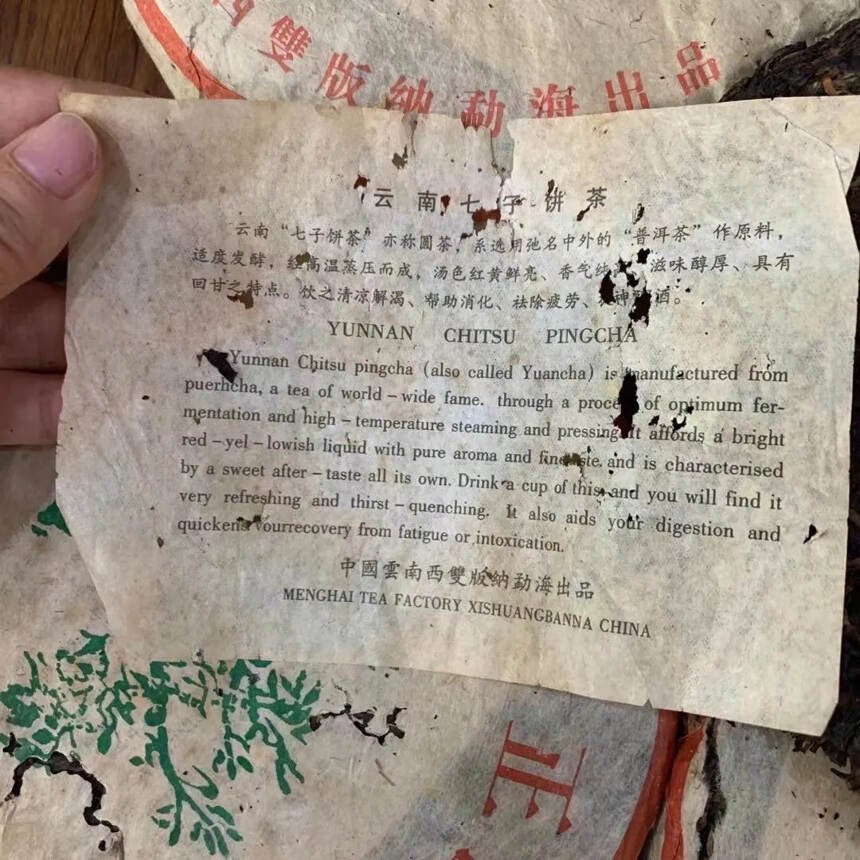 西雙版納勐海出品
云南七子饼茶
云南“七子饼茶”亦称圆茶，系选用驰名中外的“普洱茶”作原料，
适度发酵，经高温蒸压而成，汤色红黄鲜亮、香气纯 滋味醇厚、具有
回甘之特点。饮之清凉解渴、帮助消化、祛除疲劳、 神 酒。
YUNNAN CHITSU PINGCHA
Yunnan Chitsu pingcha (also called Yuancha) is manufactured from
puerhcha, a tea of world – wide fame. through a proce of optimum fer-
mentation and high – temperature steaming and pressing. It affords a bright
red – yel – lowish liquid with pure aroma and fine taste. and is characterised
by a sweet after – taste all its own. Drink a cup of this, and you will find it
very refreshing and thirst – quenching. It also aids your digestion and
quickens vourrecovery from fatigue or intoxication.
中國雲南西雙版納勐海出品
MENGHAI TEA FACTORY XISHUANGBANNA CHINA
正